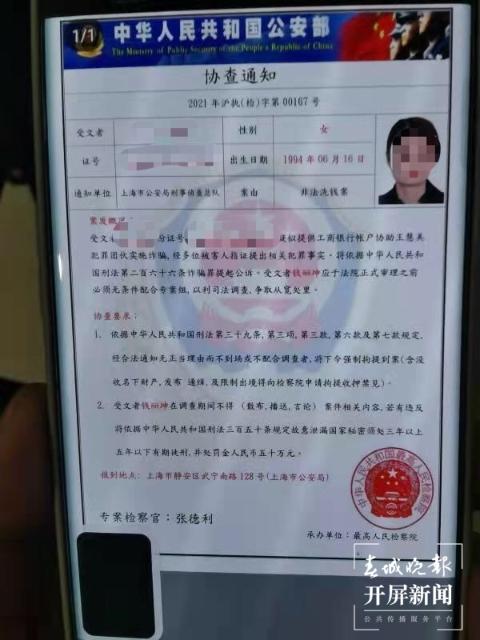 1/1
中华人民共和国公安部
The Ministry of Public Security of the People's Republic of China
协查通知
2021年沪执(检)字第00167号
受文者 性别 女
证号 出生日期 1994年06月16日
通知单位 上海市公安局刑事侦查总队 案由 非法洗钱案
案发概况:
受文 份证号 疑似提供工商银行帐户协助王慧美
犯罪团伙实施诈骗,经多位被害人指证提出相关犯罪事实。将依据中华人民共和
国刑法第二百六十六条诈骗罪提起公诉。受文者钱丽坤应于法院正式审理之前
必须无条件配合专案组,以利司法调查,争取从宽处里。
协查要求:
1. 依据中华人民共和国刑法第三十九条,第三项,第三款,第六款及第七款规定,
经合法通知无正当理由而不到场或不配合调查者,将下令强制拘提到案(含没
收名下财产,发布 通缉,及限制出境得向检察院申请拘提收押禁见)。
2. 受文者钱丽坤在调查期间不得 (散布,播送,言论) 案件相关内容,若有违反
将依据中华人民共和国刑法三百五十条规定故意泄漏国家秘密须处三年以上
五年以下有期徒刑,并处罚金人民币五十万元。
报到地点:上海市静安区武宁南路128号(上海市公安局)
中华人民共和国最高人民检察院
专案检察官:张德利
承办单位:最高人民检察院
春城晚报
开屏新闻
公共传播服务平台